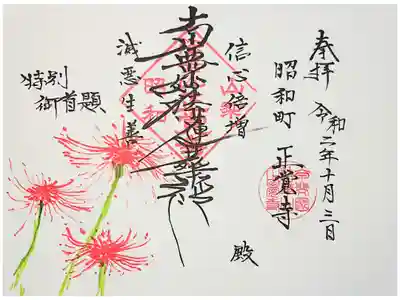 奉拝 令和二年十月三日
昭和町 正覚寺
信心倍増
南無妙法蓮華経
滅悪生善
特別
御首題
殿